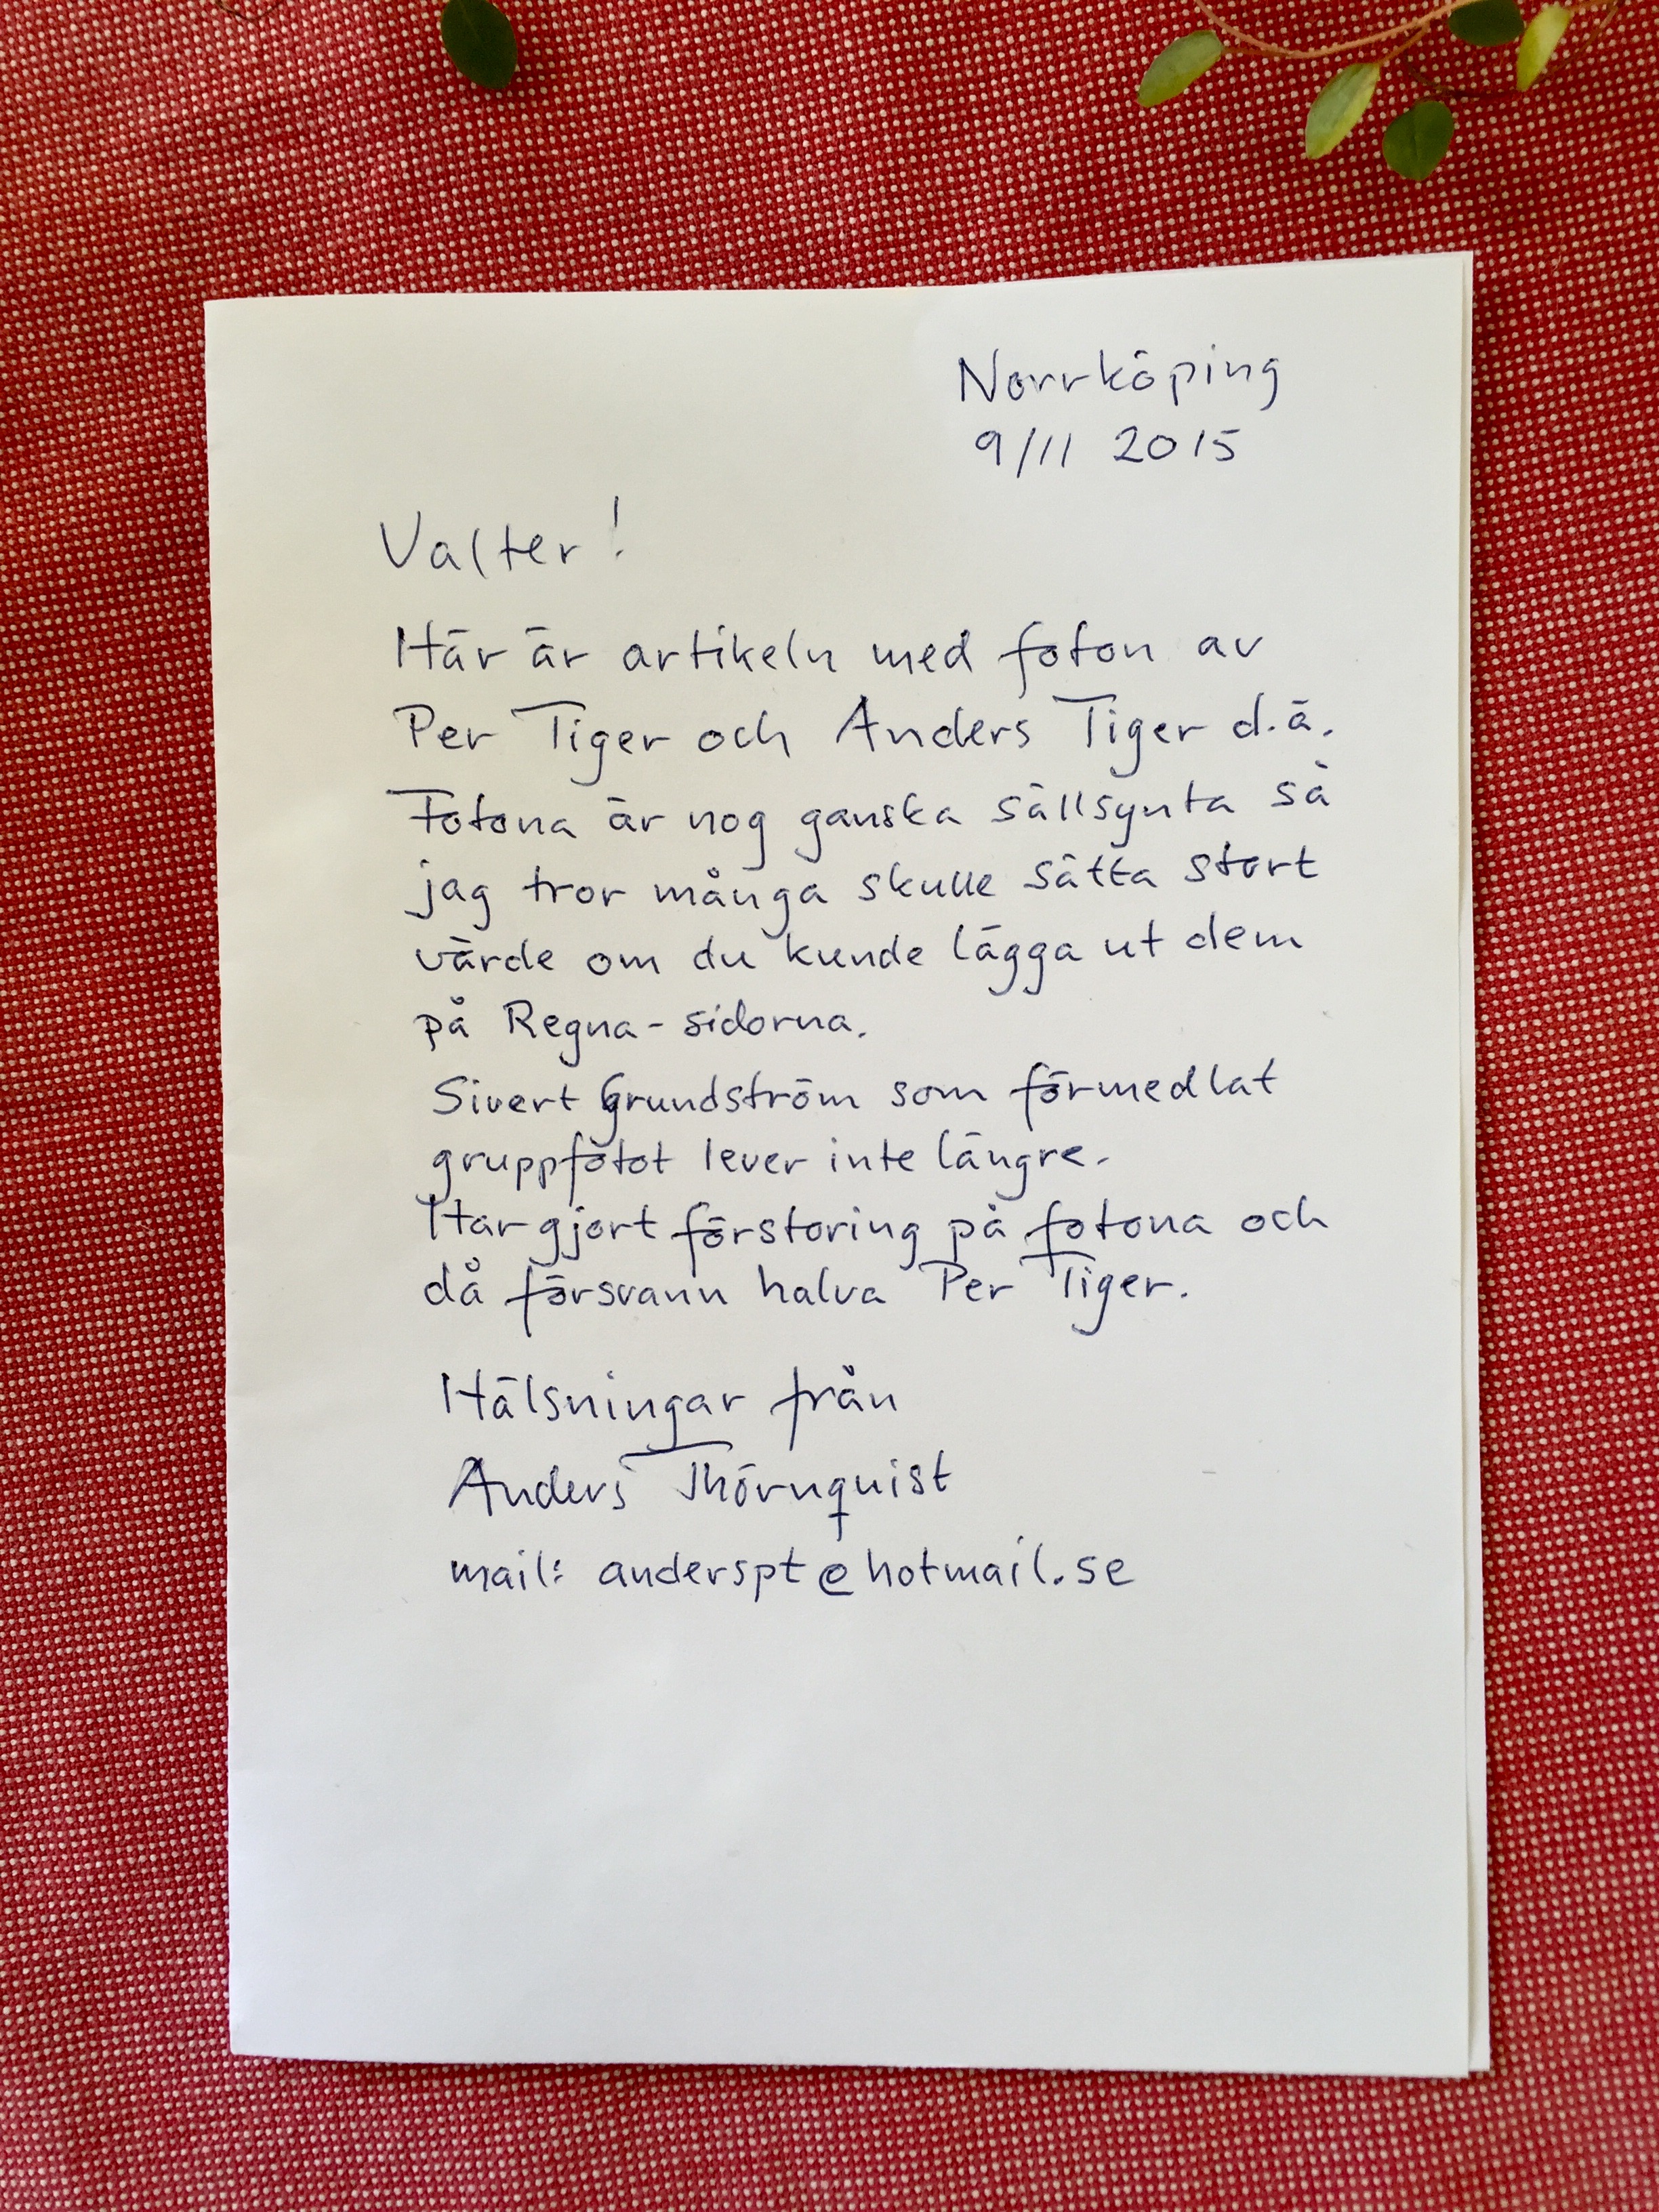 Norrköping
9/11 2015
Valter!
Här är artikeln med foton av
Per Tiger och Anders Tiger d.ä.
Fotona är nog ganska sällsynta så
jag tror många skulle sätta stort
värde om du kunde lägga ut dem
på Regna-sidorna.
Sivert Grundström som förmedlat
gruppfotot lever inte längre.
Har gjort förstoring på fotona och
då försvann halva Per Tiger.
Hälsningar från
Anders Thörnquist
mail: anderspt@hotmail.se